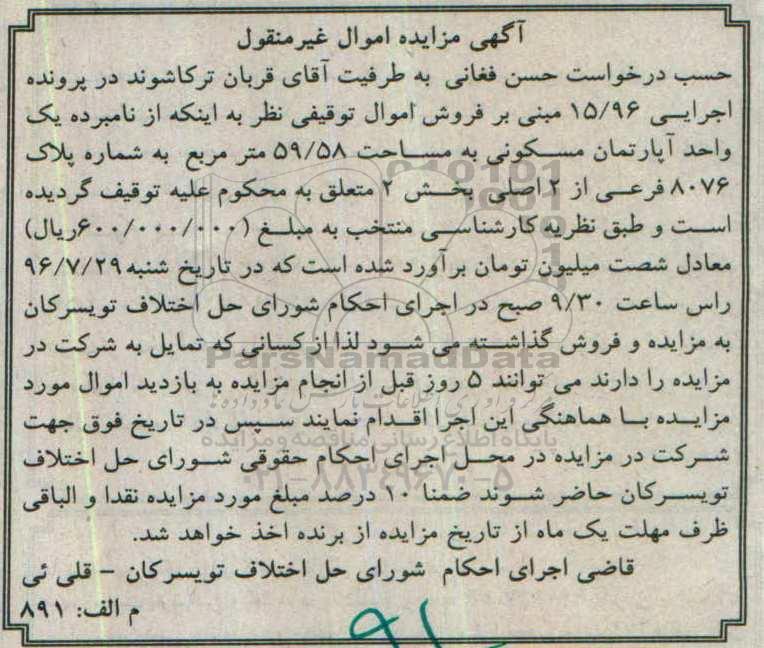 آگهی مزایده اموال غیرمنقول
حسب درخواست حسن فغانی به طرفیت آقای قربان ترکاشوند در پرونده
اجرایی ۱۵/۹۶ مبنی بر فروش اموال توقیفی نظر به اینکه از نامبرده یک
واحد آپارتمان مسکونی به مساحت ۵۹/۵۸ متر مربع به شماره پلاک
۸۰۷۶ فرعی از ۲ اصلی بخش ۲ متعلق به محکوم علیه توقیف گردیده
است و طبق نظریه کارشناسی منتخب به مبلغ (۶۰۰/۰۰۰/۰۰۰ریال)
معادل شصت میلیون تومان برآورد شده است که در تاریخ شنبه ۹۶/۷/۲۹
راس ساعت ۹/۳۰ صبح در اجرای احکام شورای حل اختلاف تویسرکان
به مزایده و فروش گذاشته می شود لذا از کسانی که تمایل به شرکت در
ParsNamadData
مزایده را دارند می توانند ۵ روز قبل از انجام مزایده به بازدید اموال مورد
مزایده با هماهنگی این اجرا اقدام نمایند سپس در تاریخ فوق جهت
پایگاه اطلاع رسانی مناقصه و مزایده
شرکت در مزایده در محل اجرای احکام حقوقی شورای حل اختلاف
۰۲۱-۸۸۳۴۹۶۷۰-۵
تویسرکان حاضر شوند ضمنا ۱۰ درصد مبلغ مورد مزایده نقدا و الباقی
ظرف مهلت یک ماه از تاریخ مزایده از برنده اخذ خواهد شد.
قاضی اجرای احکام شورای حل اختلاف تویسرکان - قلی ئی
م الف: ۸۹۱